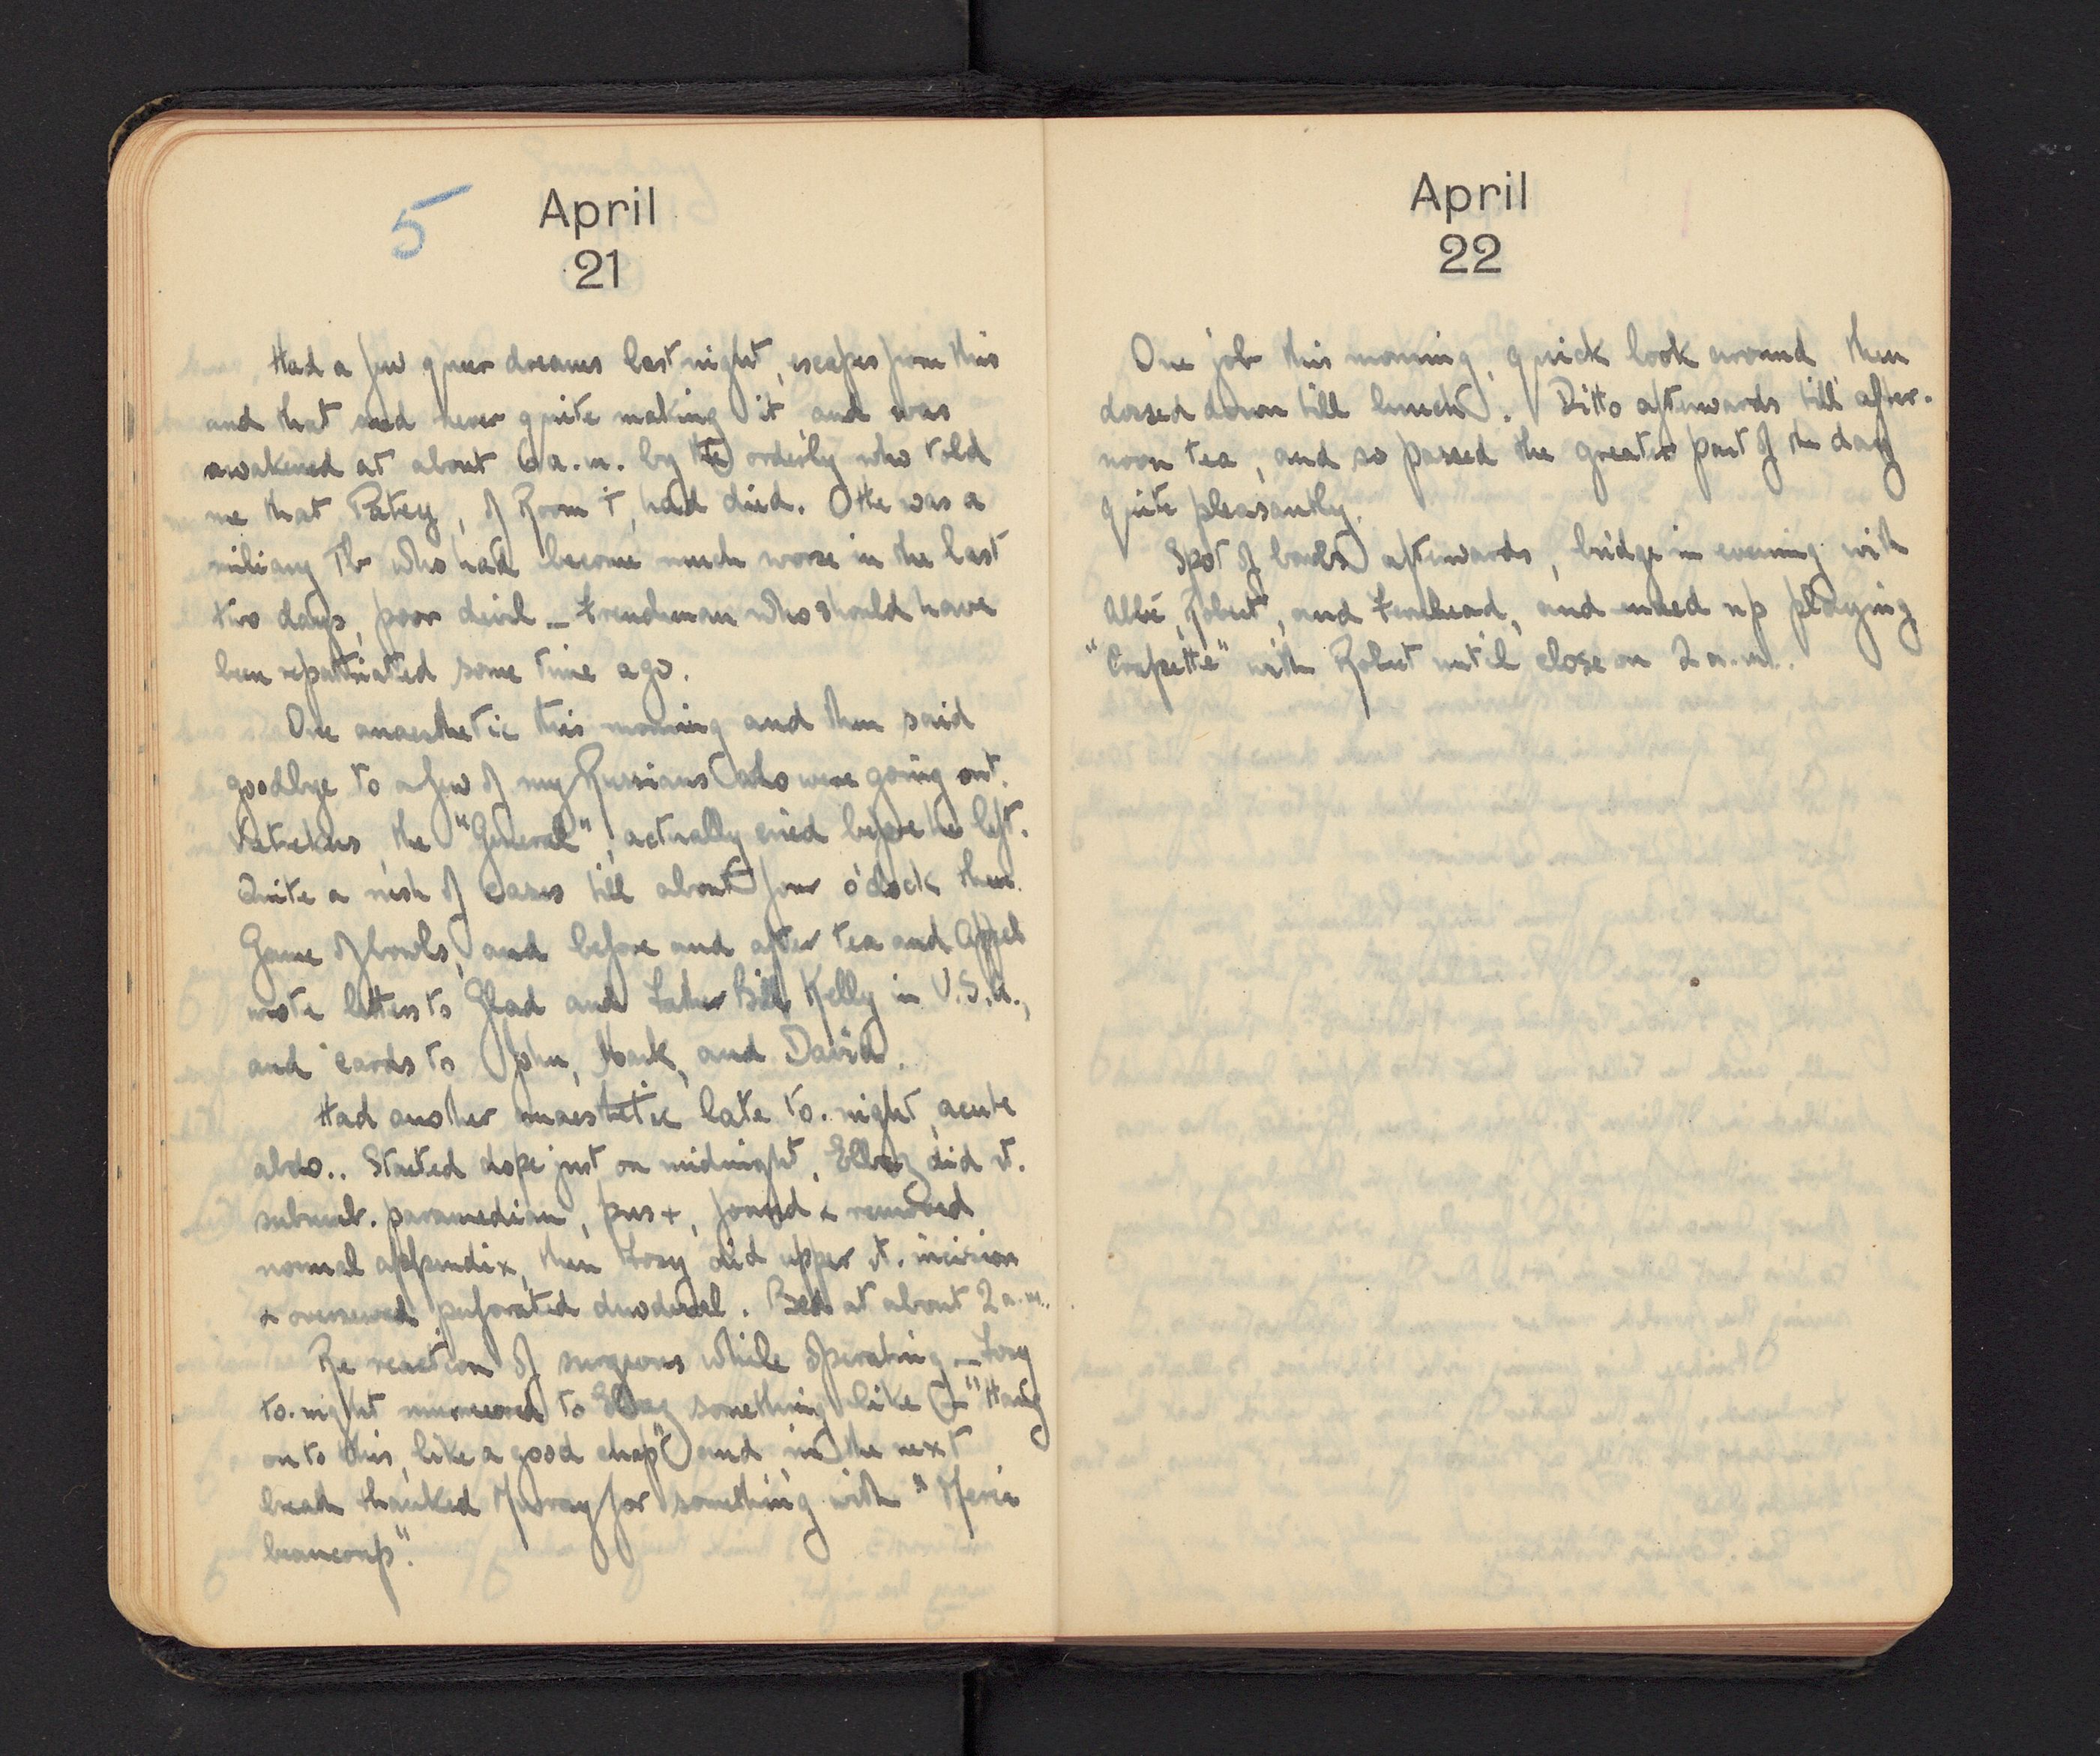 5
April
21
Had a few queer dreams last night, escapes from this
and that and never quite making it, and was
awakened at about 6 a.m. by the orderly who told
me that Patey, of Room 7, had died. He was a
miliary Tb who had become much worse in the last
two days, poor devil – Frenchman who should have
been repatriated some time ago.
One anaesthetic this morning and then said
goodbye to a few of my Russians who were going out.
the "General", actually cried before he left.
Quite a rush of cases till about four o'clock then.
Game of bowls, and before and after tea and Appel
wrote letters to Glad and Father Bill Kelly in U.S.A.,
and cards to John, Mark, and David.
Had another anaesthetic late to-night, acute
abdo.. Started dope just on midnight, Elbaz did rt.
subumb. paramedian, pus +, found & removed
normal appendix, then did upper rt. incision
& oversewed perforated duodenal. Bed at about 2 a.m..
Re reaction of surgeons while operating –
to-night murmured to Elbaz something like "Hang
onto this, like a good chap" and in the next
breath thanked Murray for something with "Merci
beaucoup".
April
22
One job this morning, quick look around, then
dozed down till lunch. Ditto afterwards till after-
noon tea, and so passed the greater part of the day
quite pleasantly.
Spot of bowls afterwards, bridge in evening with
Abbé, Robert, and and ended up playing
"Crapette" with Robert until close on 2 a.m..